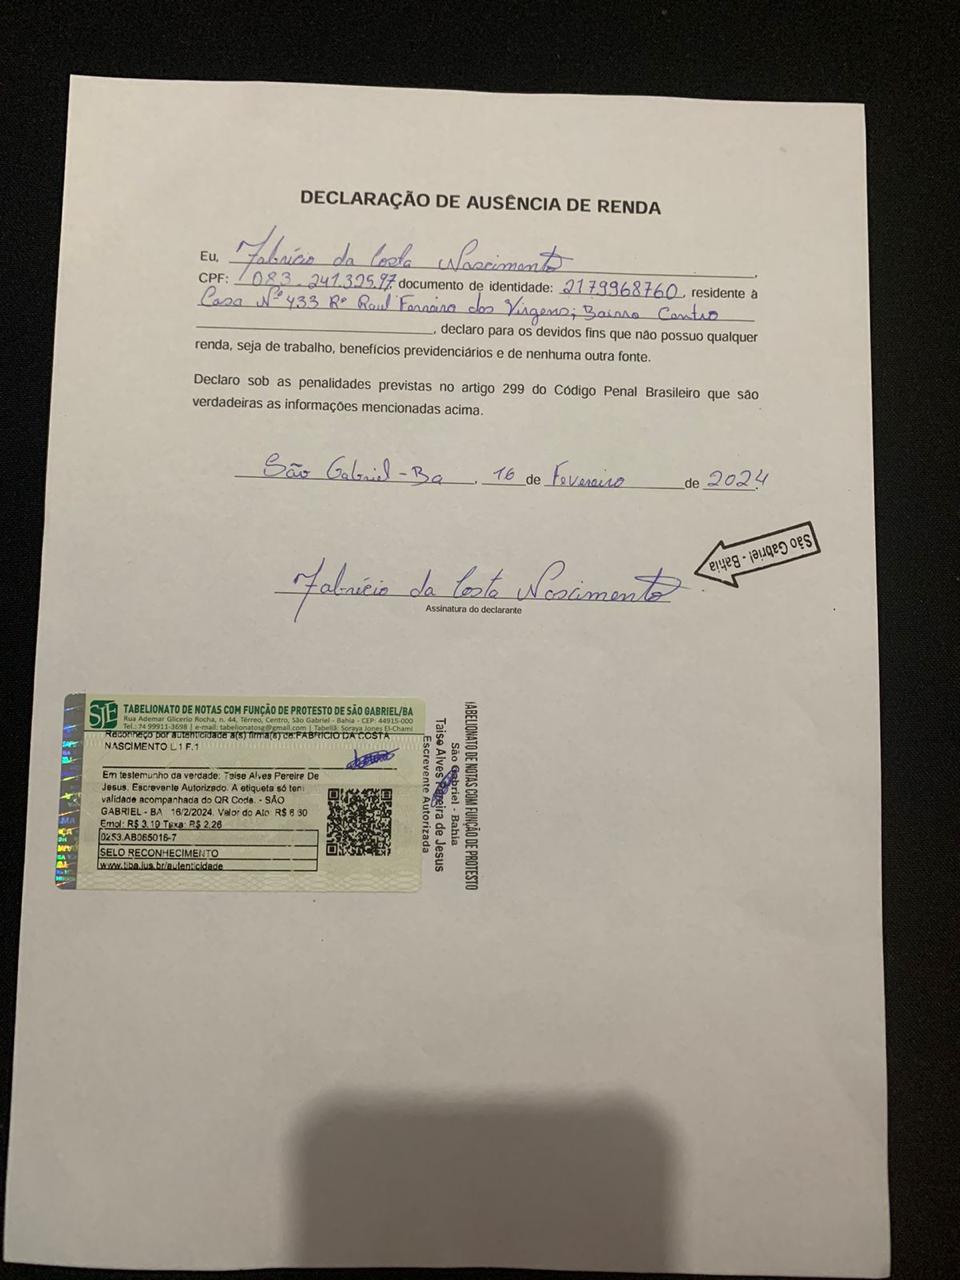 DECLARAÇÃO DE AUSÊNCIA DE RENDA
Eu, Fabrício da Costa Nascimento,
CPF: 083.241.325.97 documento de identidade: 2179968760, residente à
Casa Nº 433 Rª Raul Ferreira dos Virgens; Bairro Centro
, declaro para os devidos fins que não possuo qualquer
renda, seja de trabalho, benefícios previdenciários e de nenhuma outra fonte.
Declaro sob as penalidades previstas no artigo 299 do Código Penal Brasileiro que são
verdadeiras as informações mencionadas acima.
São Gabriel-Ba, 16 de Fevereiro de 2024
São Gabriel - Bahia
Fabrício da Costa Nascimento
Assinatura do declarante
SJE TABELIONATO DE NOTAS COM FUNÇÃO DE PROTESTO DE SÃO GABRIEL/BA
Rua Ademar Glicerio Rocha, n. 44, Térreo, Centro, São Gabriel - Bahia - CEP: 44915-000
Tel.: 74 99911-3698 | e-mail: tabelionatosg@gmail.com | Tabeliã: Soraya Jones El-Chami
Reconheço por autenticidade a(s) firma(s) de: FABRICIO DA COSTA
NASCIMENTO L.1 F.1
Em testemunho da verdade: Taise Alves Pereira De
Jesus. Escrevente Autorizado. A etiqueta só tem
validade acompanhada do QR Code. - SÃO
GABRIEL - BA 16/2/2024. Valor do Ato R$
Emol: R$ 3,10 Taxa: R$ 2,26
0253.AB065016-7
SELO RECONHECIMENTO
www.tjba.jus.br/autenticidade
TABELIONATO DE NOTAS COM FUNÇÃO DE PROTESTO
São Gabriel - Bahia
Taise Alves Pereira de Jesus
Escrevente Autorizada